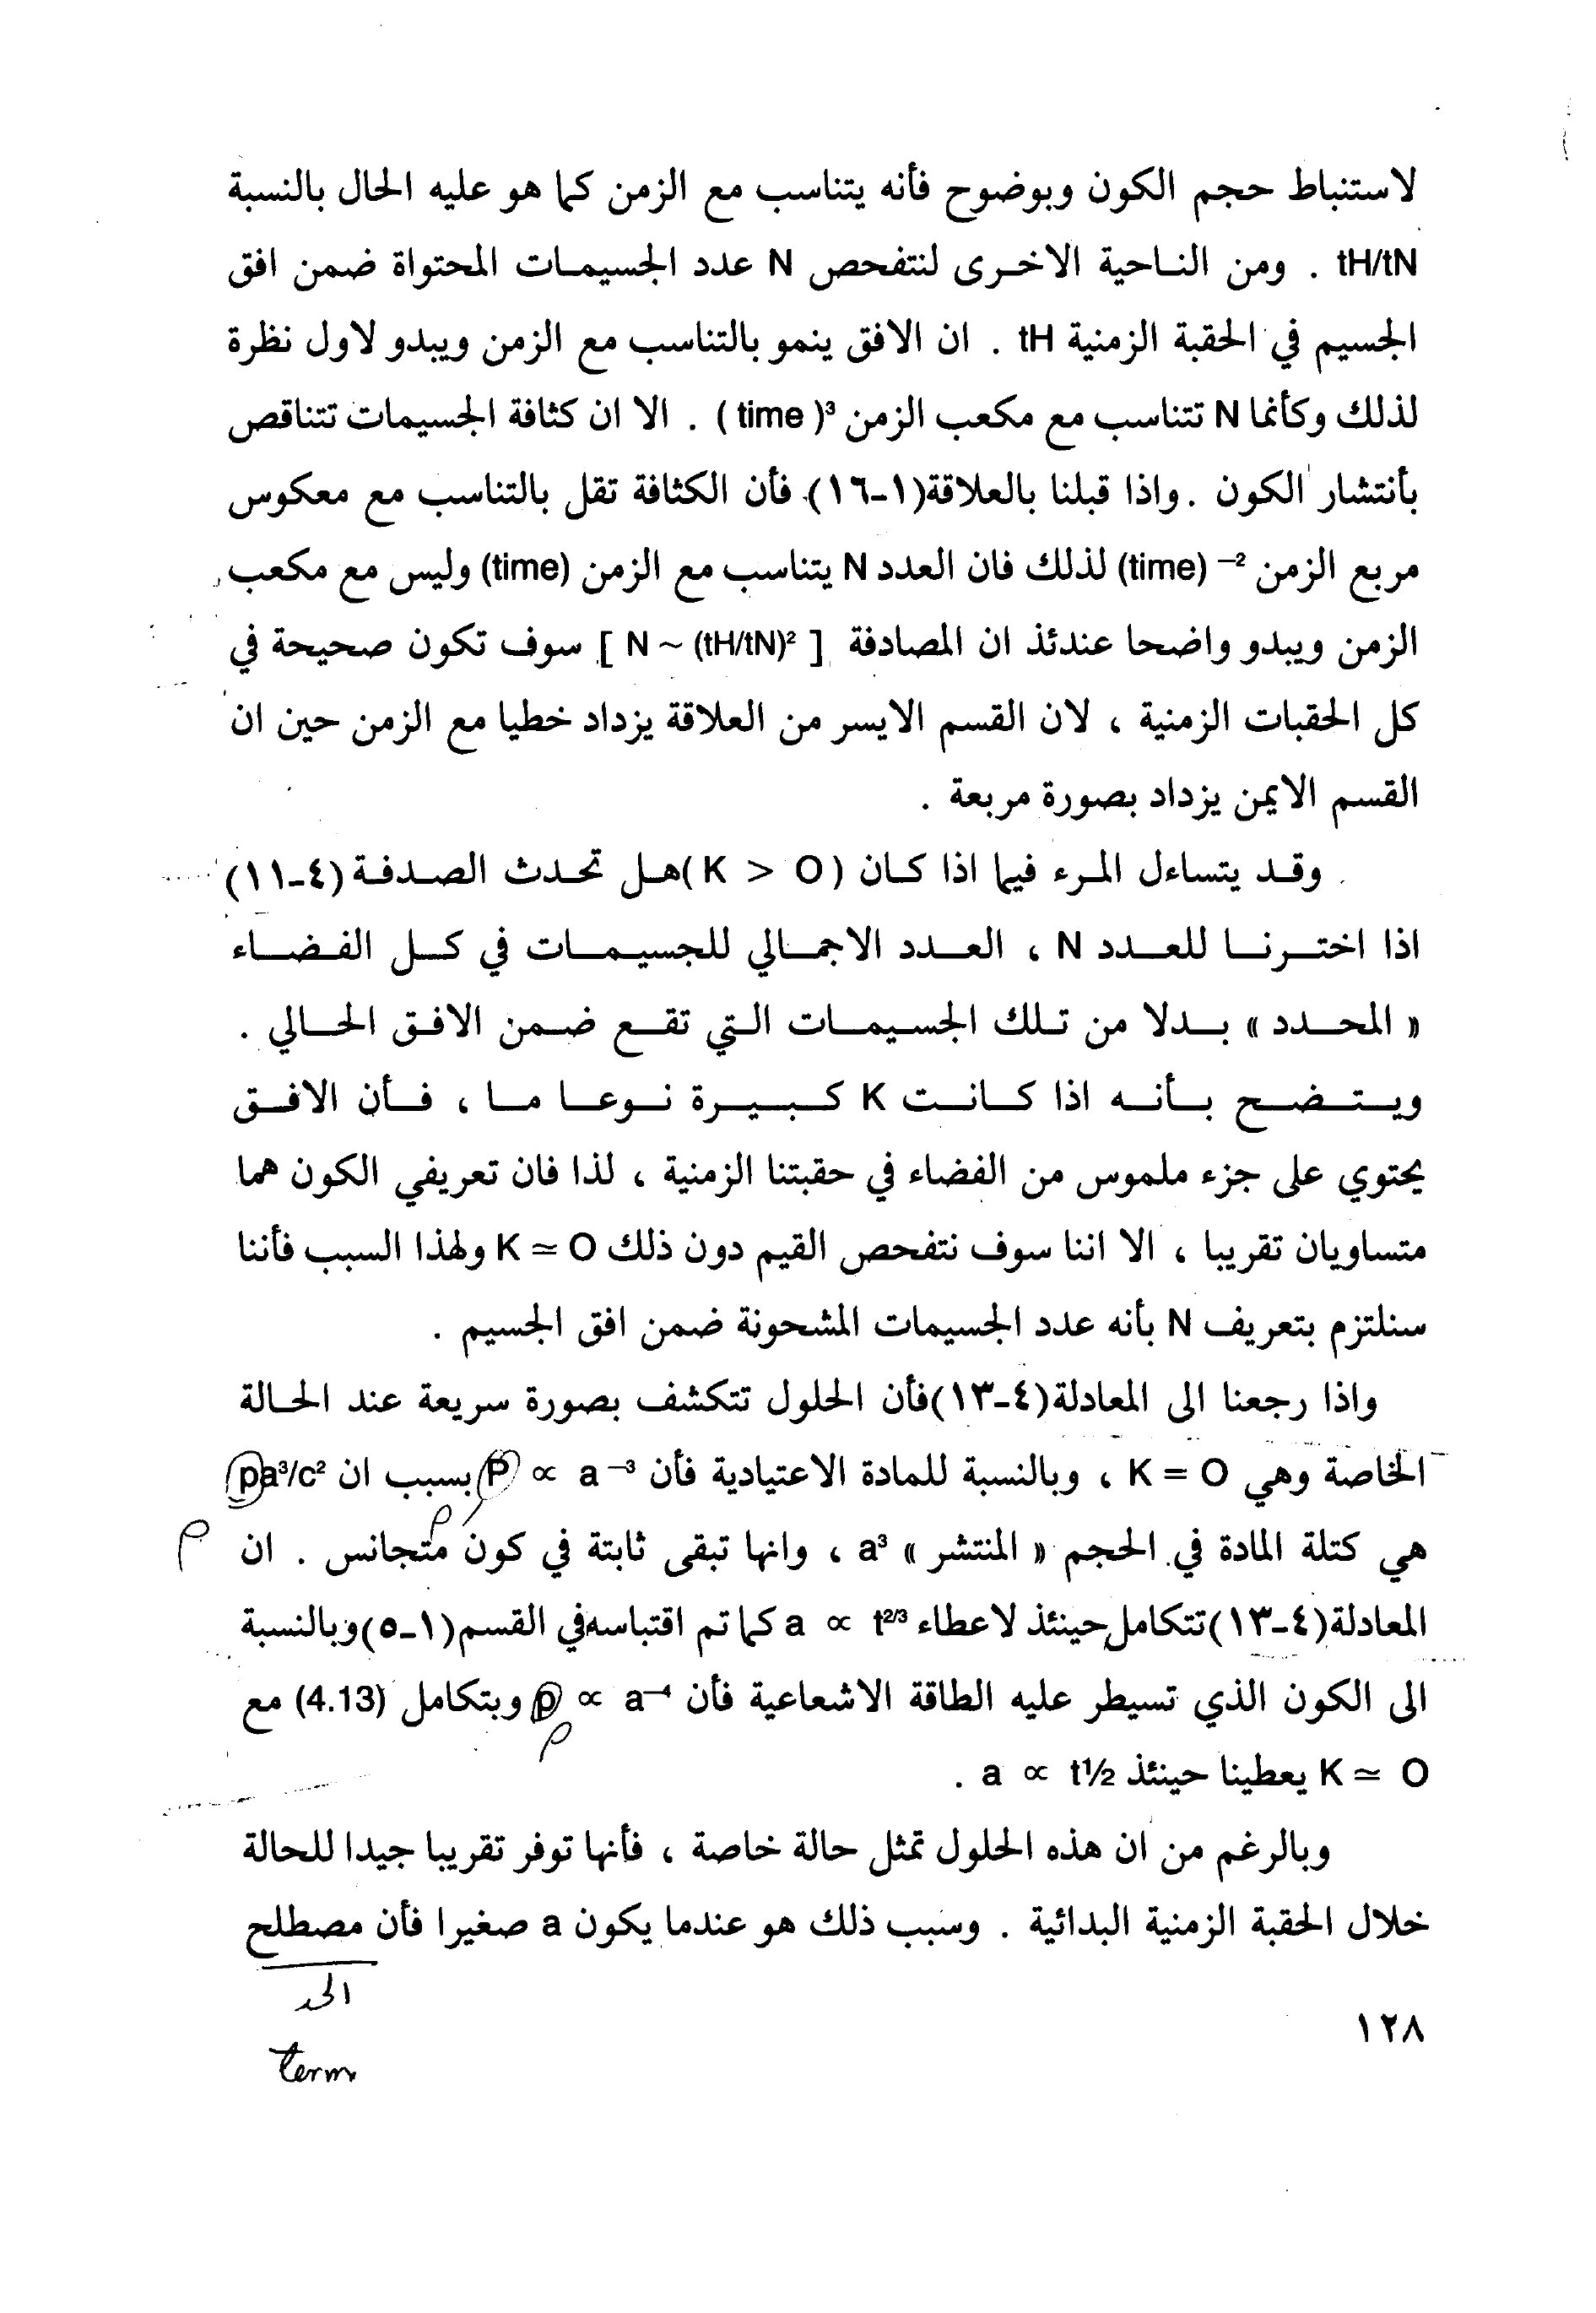 لاستنباط حجم الكون وبوضوح فأنه يتناسب مع الزمن كما هو عليه الحال بالنسبة
tH/tN . ومن الناحية الاخرى لنتفحص N عدد الجسيمات المحتواة ضمن افق
الجسيم في الحقبة الزمنية tH . ان الافق ينمو بالتناسب مع الزمن ويبدو لاول نظرة
لذلك وكأنما N تتناسب مع مكعب الزمن ( time )³ . الا ان كثافة الجسيمات تتناقص
بأنتشار الكون . واذا قبلنا بالعلاقة (١-١٦) فأن الكثافة تقل بالتناسب مع معكوس
مربع الزمن (time) –² لذلك فان العدد N يتناسب مع الزمن (time) وليس مع مكعب
الزمن ويبدو واضحا عندئذ ان المصادفة [ N ~ (tH/tN)² ] سوف تكون صحيحة في
كل الحقبات الزمنية ، لان القسم الايسر من العلاقة يزداد خطيا مع الزمن حين ان
القسم الايمن يزداد بصورة مربعة .
وقد يتساءل المرء فيما اذا كان (K > O) هل تحدث الصدفة (٤-١١)
اذا اخترنا للعدد N ، العدد الاجمالي للجسيمات في كل الفضاء
« المحدد » بدلا من تلك الجسيمات التي تقع ضمن الافق الحالي .
ويتضح بأنه اذا كانت K كبيرة نوعا ما ، فأن الافق
يحتوي على جزء ملموس من الفضاء في حقبتنا الزمنية ، لذا فان تعريفي الكون هما
متساويان تقريبا ، الا اننا سوف نتفحص القيم دون ذلك K ≃ O ولهذا السبب فأننا
سنلتزم بتعريف N بأنه عدد الجسيمات المشحونة ضمن افق الجسيم .
واذا رجعنا الى المعادلة (٤-١٣) فأن الحلول تتكشف بصورة سريعة عند الحالة
الخاصة وهي K = O ، وبالنسبة للمادة الاعتيادية فأن P ∝ a –³ بسبب ان pa³/c²
ρ
هي كتلة المادة في الحجم « المنتشر » a³ ، وانها تبقى ثابتة في كون متجانس . ان
ρ
المعادلة (٤-١٣) تتكامل حينئذ لاعطاء a ∝ t²/³ كما تم اقتباسه في القسم (١-٥) وبالنسبة
الى الكون الذي تسيطر عليه الطاقة الاشعاعية فأن p ∝ a–⁴ وبتكامل (4.13) مع
ρ
K ≃ O يعطينا حينئذ a ∝ t½ .
وبالرغم من ان هذه الحلول تمثل حالة خاصة ، فأنها توفر تقريبا جيدا للحالة
خلال الحقبة الزمنية البدائية . وسبب ذلك هو عندما يكون a صغيرا فأن مصطلح
الحد
term
١٢٨